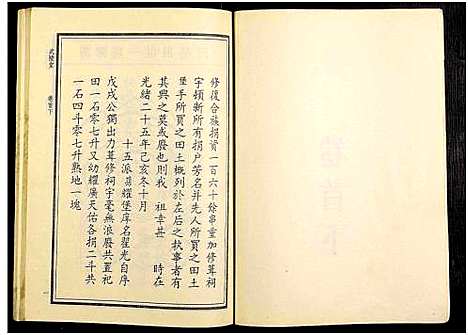 修復合族捐資一百六十餘串重加修葺祠
宇頓新所有捐户芳名并先人所買之田土
堡手所買之田土概列於左后之执事者有
其興之莫或廢也則我　祖幸甚　時在
光緒二十五年己亥冬十月
十五派嵩耀堡庠名翟光自序
戊戌公獨出力葺修祠宇毫無浪廢共置祀
田一石零七升又幼耀廣天佑各捐二斗共
一石四斗零七升熟地一塊
武陵堂
卷首下
卷首下